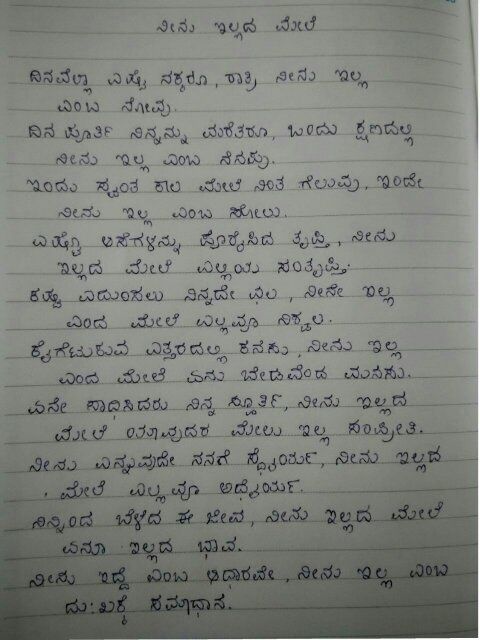 ನೀನು ಇಲ್ಲದ ಮೇಲೆ
ದಿನವೆಲ್ಲಾ ಎಷ್ಟೆ ನಕ್ಕರೂ, ರಾತ್ರಿ ನೀನು ಇಲ್ಲ
ಎಂಬ ನೋವು.
ದಿನ ಪೂರ್ತಿ ನಿನ್ನನ್ನು ಮರೆತರೂ, ಒಂದು ಕ್ಷಣದಲ್ಲಿ
ನೀನು ಇಲ್ಲ ಎಂಬ ನೆನಪು.
ಇಂದು ಸ್ವಂತ ಕಾಲ ಮೇಲೆ ನಿಂತ ಗೆಲುವು, ಇಂದೇ
ನೀನು ಇಲ್ಲ ಎಂಬ ಸೋಲು.
ಎಷ್ಟೊ ಆಸೆಗಳನ್ನು ಪೂರೈಸಿದ ತೃಪ್ತಿ, ನೀನು
ಇಲ್ಲದ ಮೇಲೆ ಎಲ್ಲಿಯ ಸಂತೃಪ್ತಿ.
ಕಷ್ಟ ಎದುರಿಸಲು ನಿನ್ನದೇ ಛಲ, ನೀನೇ ಇಲ್ಲ
ಎಂದ ಮೇಲೆ ಎಲ್ಲವೂ ನಿಶ್ಚಲ.
ಕೈಗೆಟುಕುವ ಎತ್ತರದಲ್ಲಿ ಕನಸು, ನೀನು ಇಲ್ಲ
ಎಂದ ಮೇಲೆ ಏನು ಬೇಡವೆಂದ ಮನಸು.
ಏನೇ ಸಾಧಿಸಿದರು ನಿನ್ನ ಸ್ಪೂರ್ತಿ, ನೀನು ಇಲ್ಲದ
ಮೇಲೆ ಯಾವುದರ ಮೇಲು ಇಲ್ಲ ಸಂಪ್ರೀತಿ.
ನೀನು ಎನ್ನುವುದೇ ನನಗೆ ಸ್ಥೈರ್ಯ, ನೀನು ಇಲ್ಲದ
ಮೇಲೆ ಎಲ್ಲವೂ ಅಧೈರ್ಯ.
ನಿನ್ನಿಂದ ಬೆಳೆದ ಈ ಜೀವ, ನೀನು ಇಲ್ಲದ ಮೇಲೆ
ಏನೂ ಇಲ್ಲದ ಭಾವ.
ನೀನು ಇದ್ದೆ ಎಂಬ ಆಧಾರವೇ, ನೀನು ಇಲ್ಲ ಎಂಬ
ದು:ಖಕ್ಕೆ ಸಮಾಧಾನ.